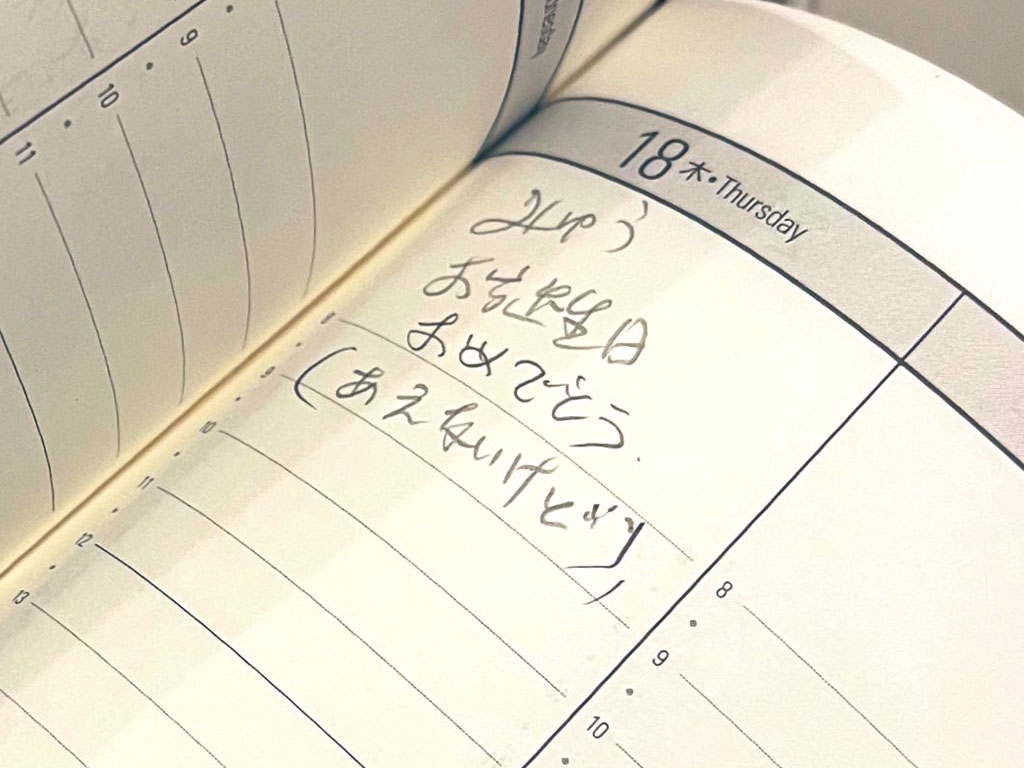 nesday
9
10
11
18 木・Thursday
みゆう
お誕生日
おめでとう.
(あえないけど)
8
9
10
11
12
13
8
9
10